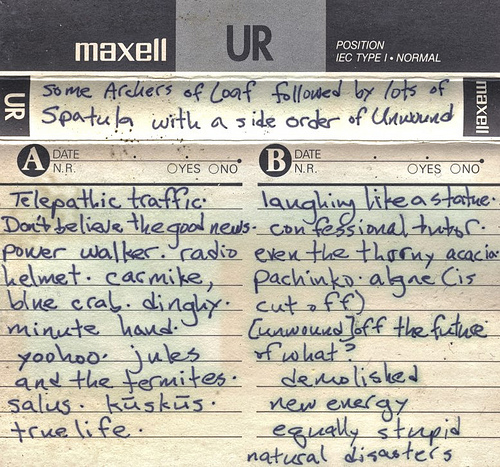 maxell UR POSITION
IEC TYPE I • NORMAL
UR
Some Archers of Loaf followed by lots of
Spatula with a side order of Unwound
maxell
A DATE
N.R. YES NO
Telepathic traffic.
Don't believe the good news.
power walker. radio
helmet. carmike,
blue crab. dinghy.
minute hand.
yoohoo. jules
and the termites.
salus. kūskūs.
true life.
B DATE
N.R. YES NO
laughing like a statue.
confessional tutor.
even the thorny acacia.
pachinko. algne (is
cut off)
[unwound] off the future
of what?
demolished
new energy
equally stupid
natural disasters